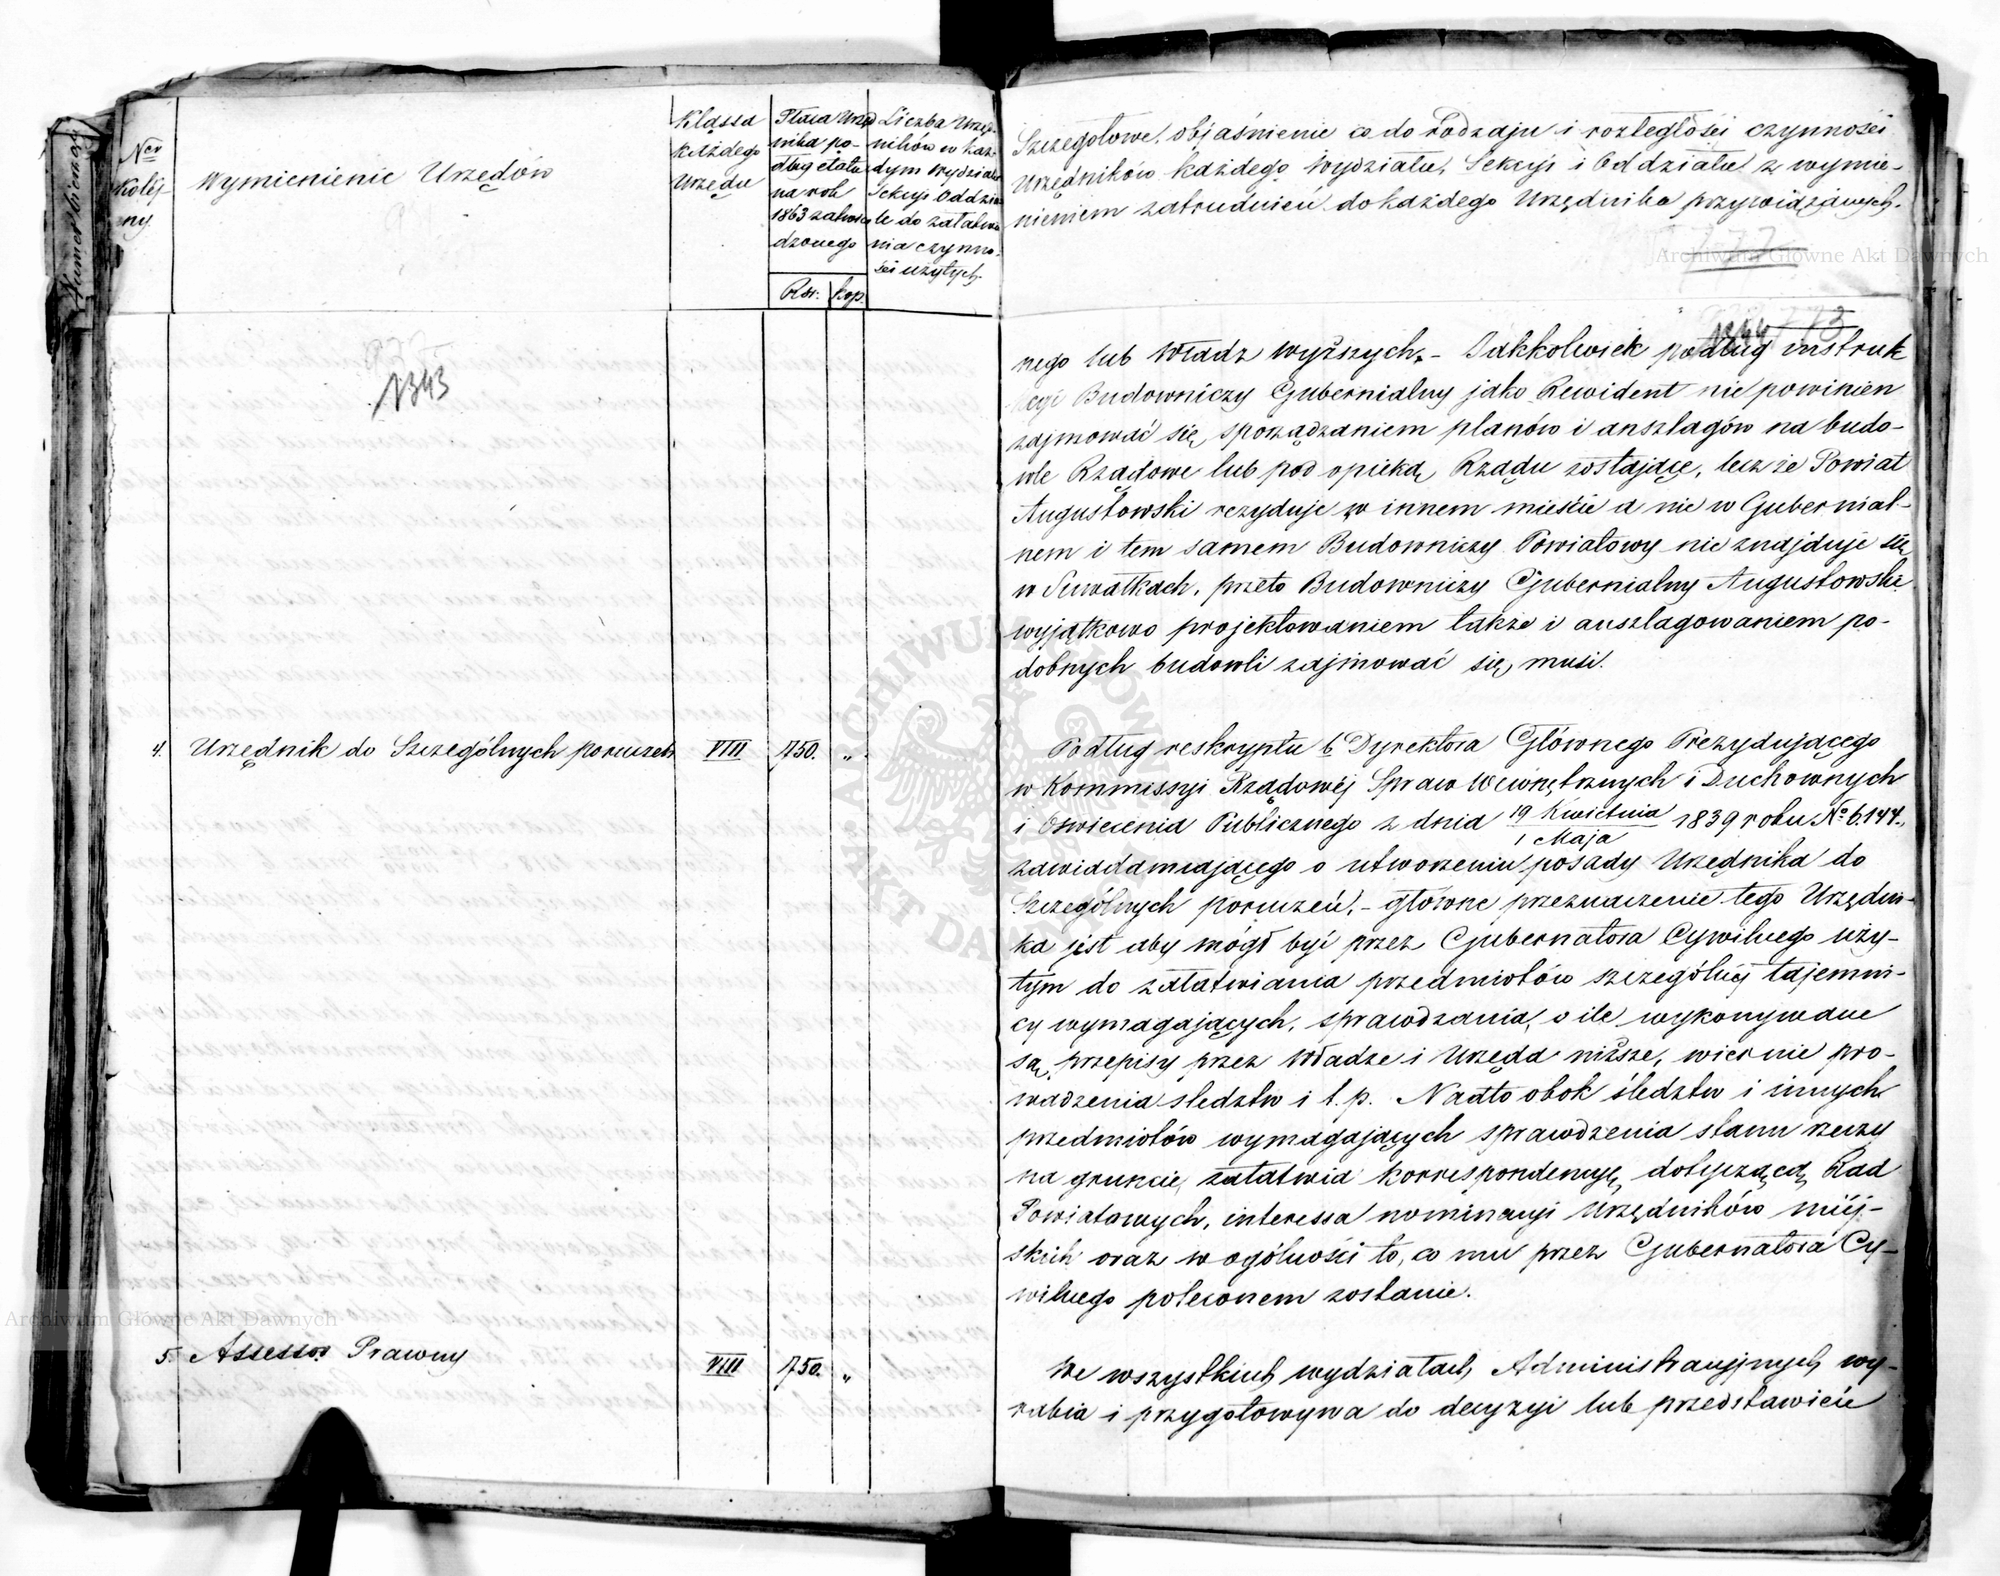 Numer bieżący
Ner
Kolej-
ny
Wymienienie Urzędów
Klassa
każdego
Urzędu
Płaca Urzęd
nika po-
dług etatu
na rok
1863 zatwier
dzonego
Rsr. kop.
Liczba Urzęd-
ników w każ-
dym Wydziale
Sekcyi Oddzia
le do załatwie
nia czynno-
ści użytych.
1343
4. Urzędnik do Szczególnych poruczeń VIII 750. „
5. Assessor Prawny VIII 750. „
Szczegółowe objaśnienie co do rodzaju i rozległości czynności
Urzędników każdego Wydziału, Sekcyi i Oddziału z wymie-
nieniem zatrudnień do każdego Urzędnika przywiązanych.
1344
nego lub Władz wyższych. – Jakkolwiek podług instruk
cyi Budowniczy Gubernialny jako Rewident nie powinien
zajmować się sporządzaniem planów i anszlagów na budo-
wle Rządowe lub pod opieką Rządu zostające, lecz że Powiat
Augustowski rezyduje w innem mieście a nie w Gubernial-
nem i tem samem Budowniczy Powiatowy nie znajduje się
w Suwałkach, przeto Budowniczy Gubernialny Augustowski
wyjątkowo projektowaniem także i anszlagowaniem po-
dobnych budowli zajmować się musi.
Podług reskryptu b. Dyrektora Głównego Prezydującego
w Kommissyi Rządowéj Spraw Wewnętrznych i Duchownych
i Oświecenia Publicznego z dnia 19 Kwietnia / 1 Maja 1839 roku No 6.144.,
zawiadamiającego o utworzeniu posady Urzędnika do
Szczególnych poruczeń, – główne przeznaczenie tego Urzędni-
ka jest aby mógł być przez Gubernatora Cywilnego uży-
tym do załatwiania przedmiotów szczególnéj tajemni-
cy wymagających, sprawdzania, o ile wykonywane
są, przepisy przez Władze i Urzęda niższe, wiernie pro-
wadzenia śledztw i t. p. Nadto obok śledztw i innych
przedmiotów wymagających sprawdzenia stanu rzeczy
na gruncie, załatwia korrespondencyę dotyczącą Rad
Powiatowych, interessa nominacyi Urzędników miéj-
skich oraz w ogólności to, co mu przez Gubernatora Cy-
wilnego poleconem zostanie.
We wszystkich wydziałach Administracyjnych wy-
rabia i przygotowywa do decyzyi lub przedstawień
Archiwum Główne Akt Dawnych
Archiwum Główne Akt Dawnych